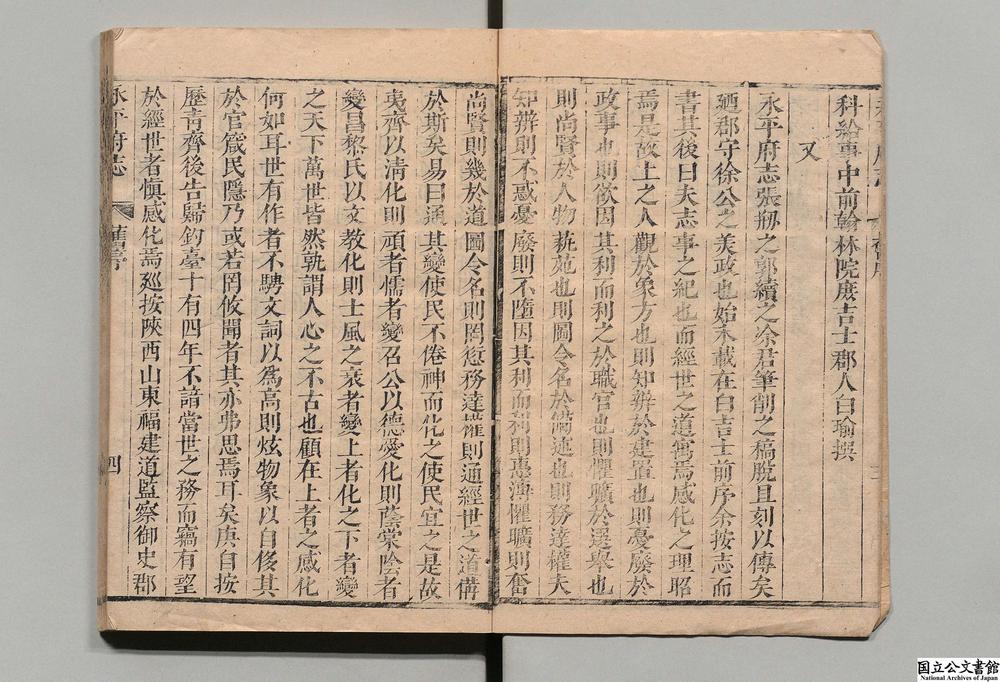 科給事中前翰林院庶吉士郡人白瑜撰
又
永平府志張刱之郭續之凃君筆削之稿脫且刻以傳矣
廼郡守徐公之美政也始末載在白吉士前序余按志而
書其後曰夫志事之紀也而經世之道寓焉感化之理昭
焉是故上之人觀於象方也則知辨於建置也則憂廢於
政事也則欲因其利而利之於職官也則懼曠於選舉也
則尚賢於人物
苑也則圖令名於
述也則務達權夫
知辨則不惑憂廢則不墮因其利而利則惠溥懼曠則奮
尚賢則幾於道圖令名則罔愆務達權則通經世之道備
於斯矣易曰通其變使民不倦神而化之使民宜之是故
夷齊以清化則頑者懦者變召公以德愛化則蔭棠陰者
變昌黎氏以文教化則士風之衰者變上者化之下者變
之天下萬世皆然孰謂人心之不古也顧在上者之感化
何如耳世有作者不騁文詞以為高則炫物象以自侈其
於官箴民隱乃或若罔攸聞者其亦弗思焉耳矣庚自按
歷青齊後告歸釣臺十有四年不諳當世之務而竊有望
於經世者慎感化焉廵按陝西山東福建道監察御史郡
永平府志
舊序
四
国立公文書館
National Archives of Japan